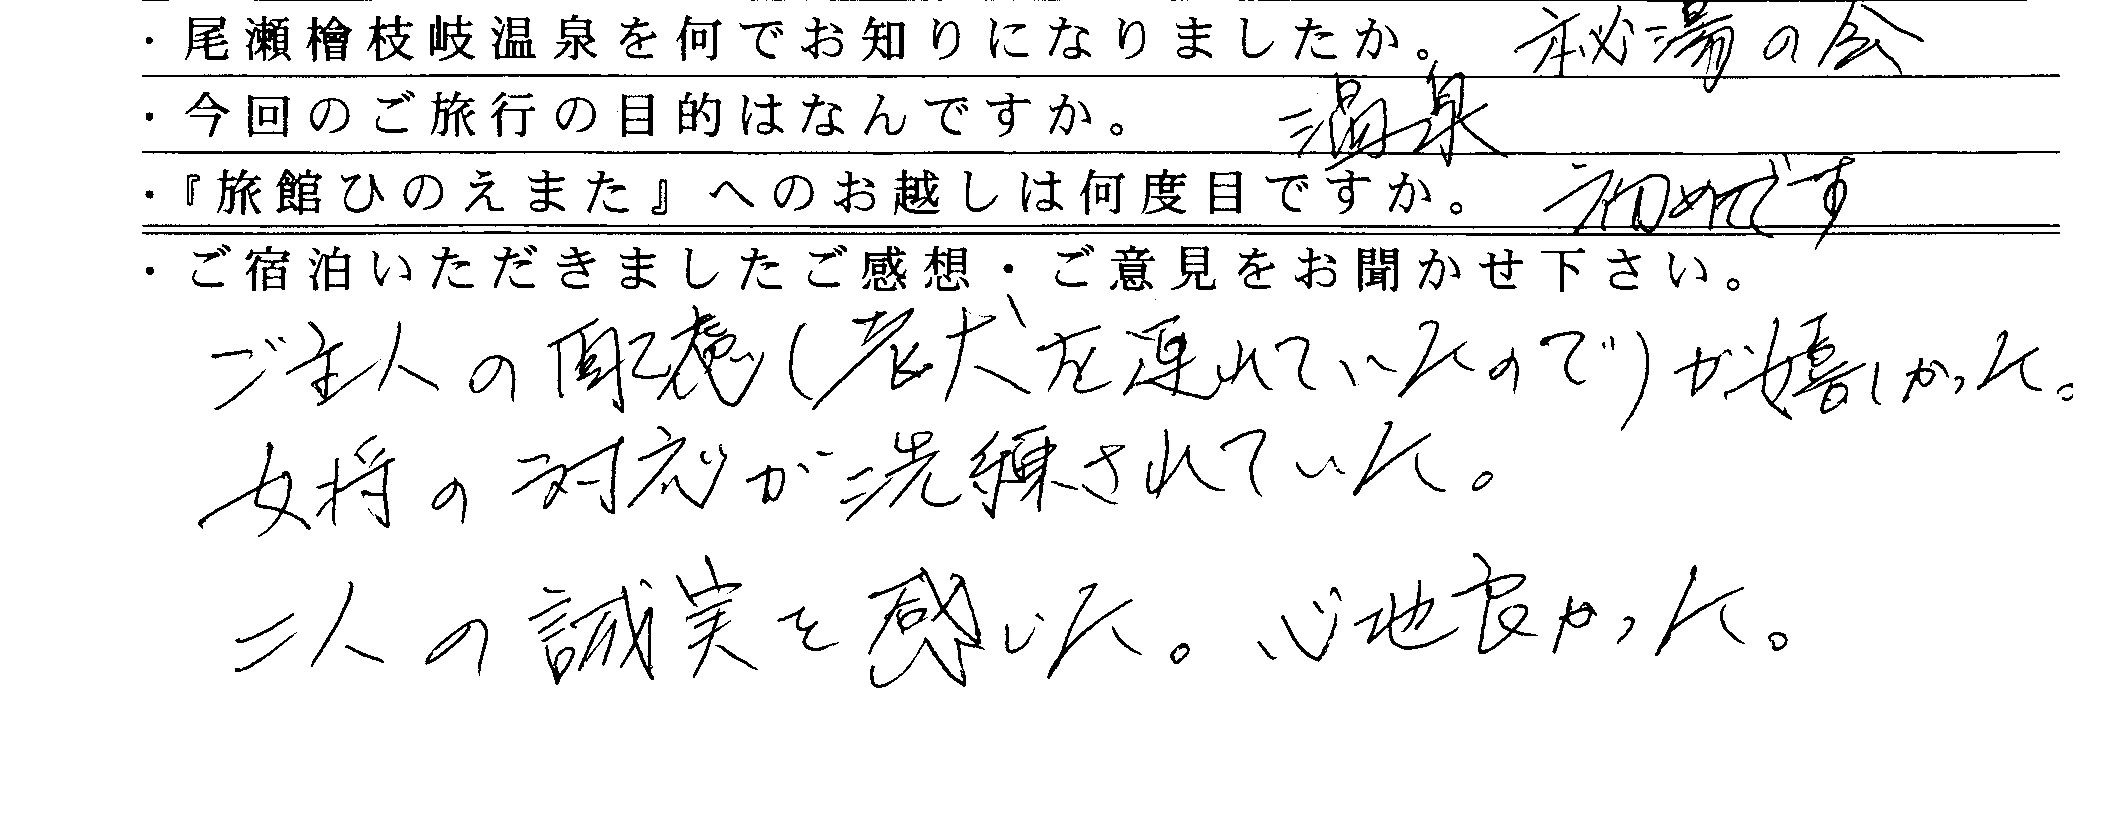 ・尾瀬檜枝岐温泉を何でお知りになりましたか。 秘湯の会
・今回のご旅行の目的はなんですか。 温泉
・『旅館ひのえまた』へのお越しは何度目ですか。 初めてです
・ご宿泊いただきましたご感想・ご意見をお聞かせ下さい。
ご主人の配慮(老犬を連れていたので)が嬉しかった。
女将の対応が洗練されていた。
二人の誠実を感じた。心地良かった。